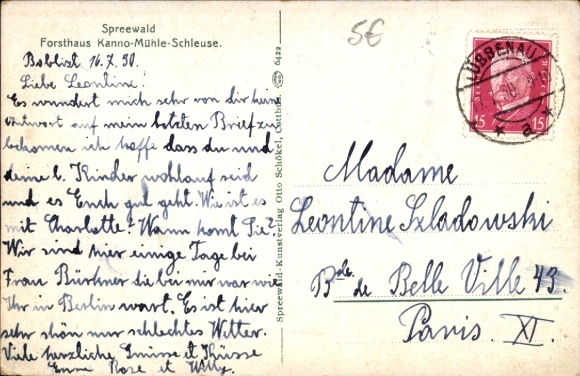 Spreewald
Forsthaus Kanno-Mühle-Schleuse.
Boblist 16.7.30.
Liebe Leontine!
Es wundert mich sehr von dir kein
Antwort auf mein letzten Brief zu
bekomen ich hoffe dass du und
deine l. Kinder wohlauf seid
und es Euch gut geht. Wie ist es
mit Charlotte? Wann komt Sie?
Wir sind hier einige Tage bei
Frau Bürkner die bei mir war wie
Ihr in Berlin wart. Es ist hier
sehr schön nur schlechtes Wetter.
Viele herzliche Grüsse et Küsse
Eure Rose et Willy.
6422
Spreewald-Kunstverlag Otto Schökel, Cottbus.
5€
LÜBBENAU
a
15 15
Madame
Leontine Szladowski
Bole. de Belle Ville 43.
Paris. XI.